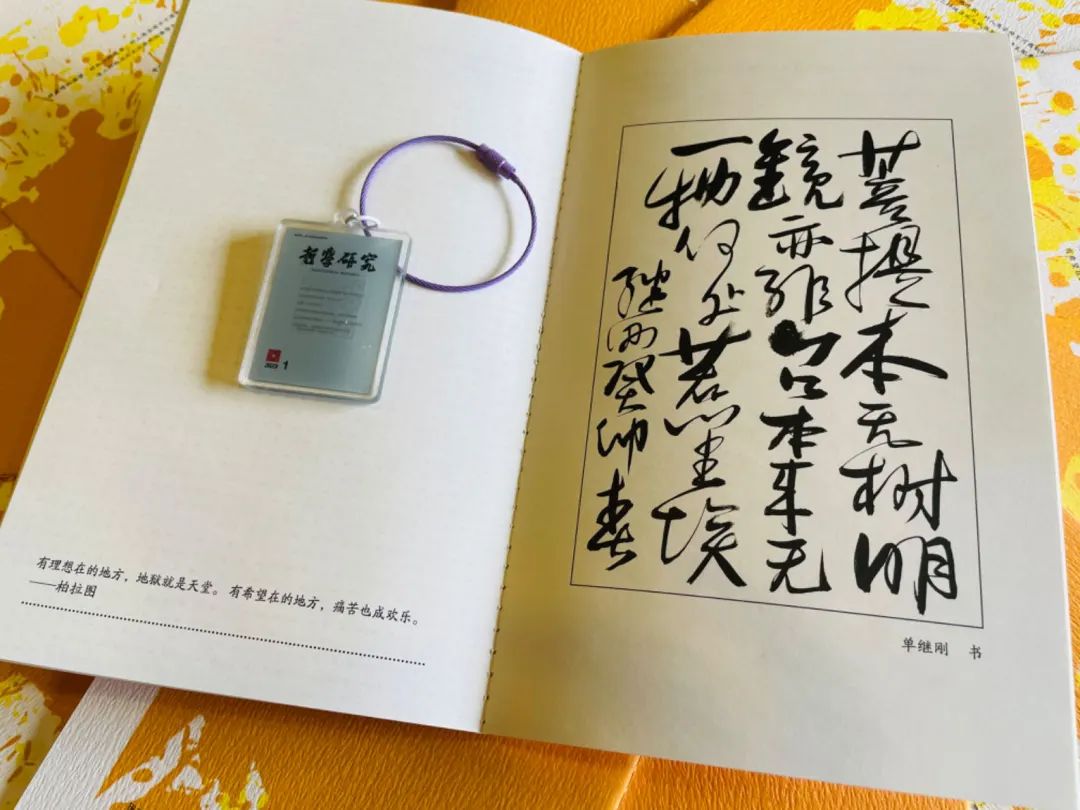 哲学研究
2023 1
有理想在的地方，地獄就是天堂。有希望在的地方，痛苦也成欢乐。
——柏拉图
菩提本无树明
镜亦非台本来无
一物何处惹尘埃
继刚癸卯春
单继刚 书